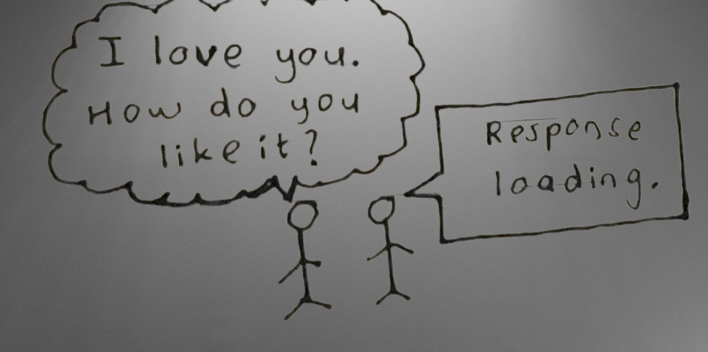 I love you.
How do you
like it?
Response
loading.